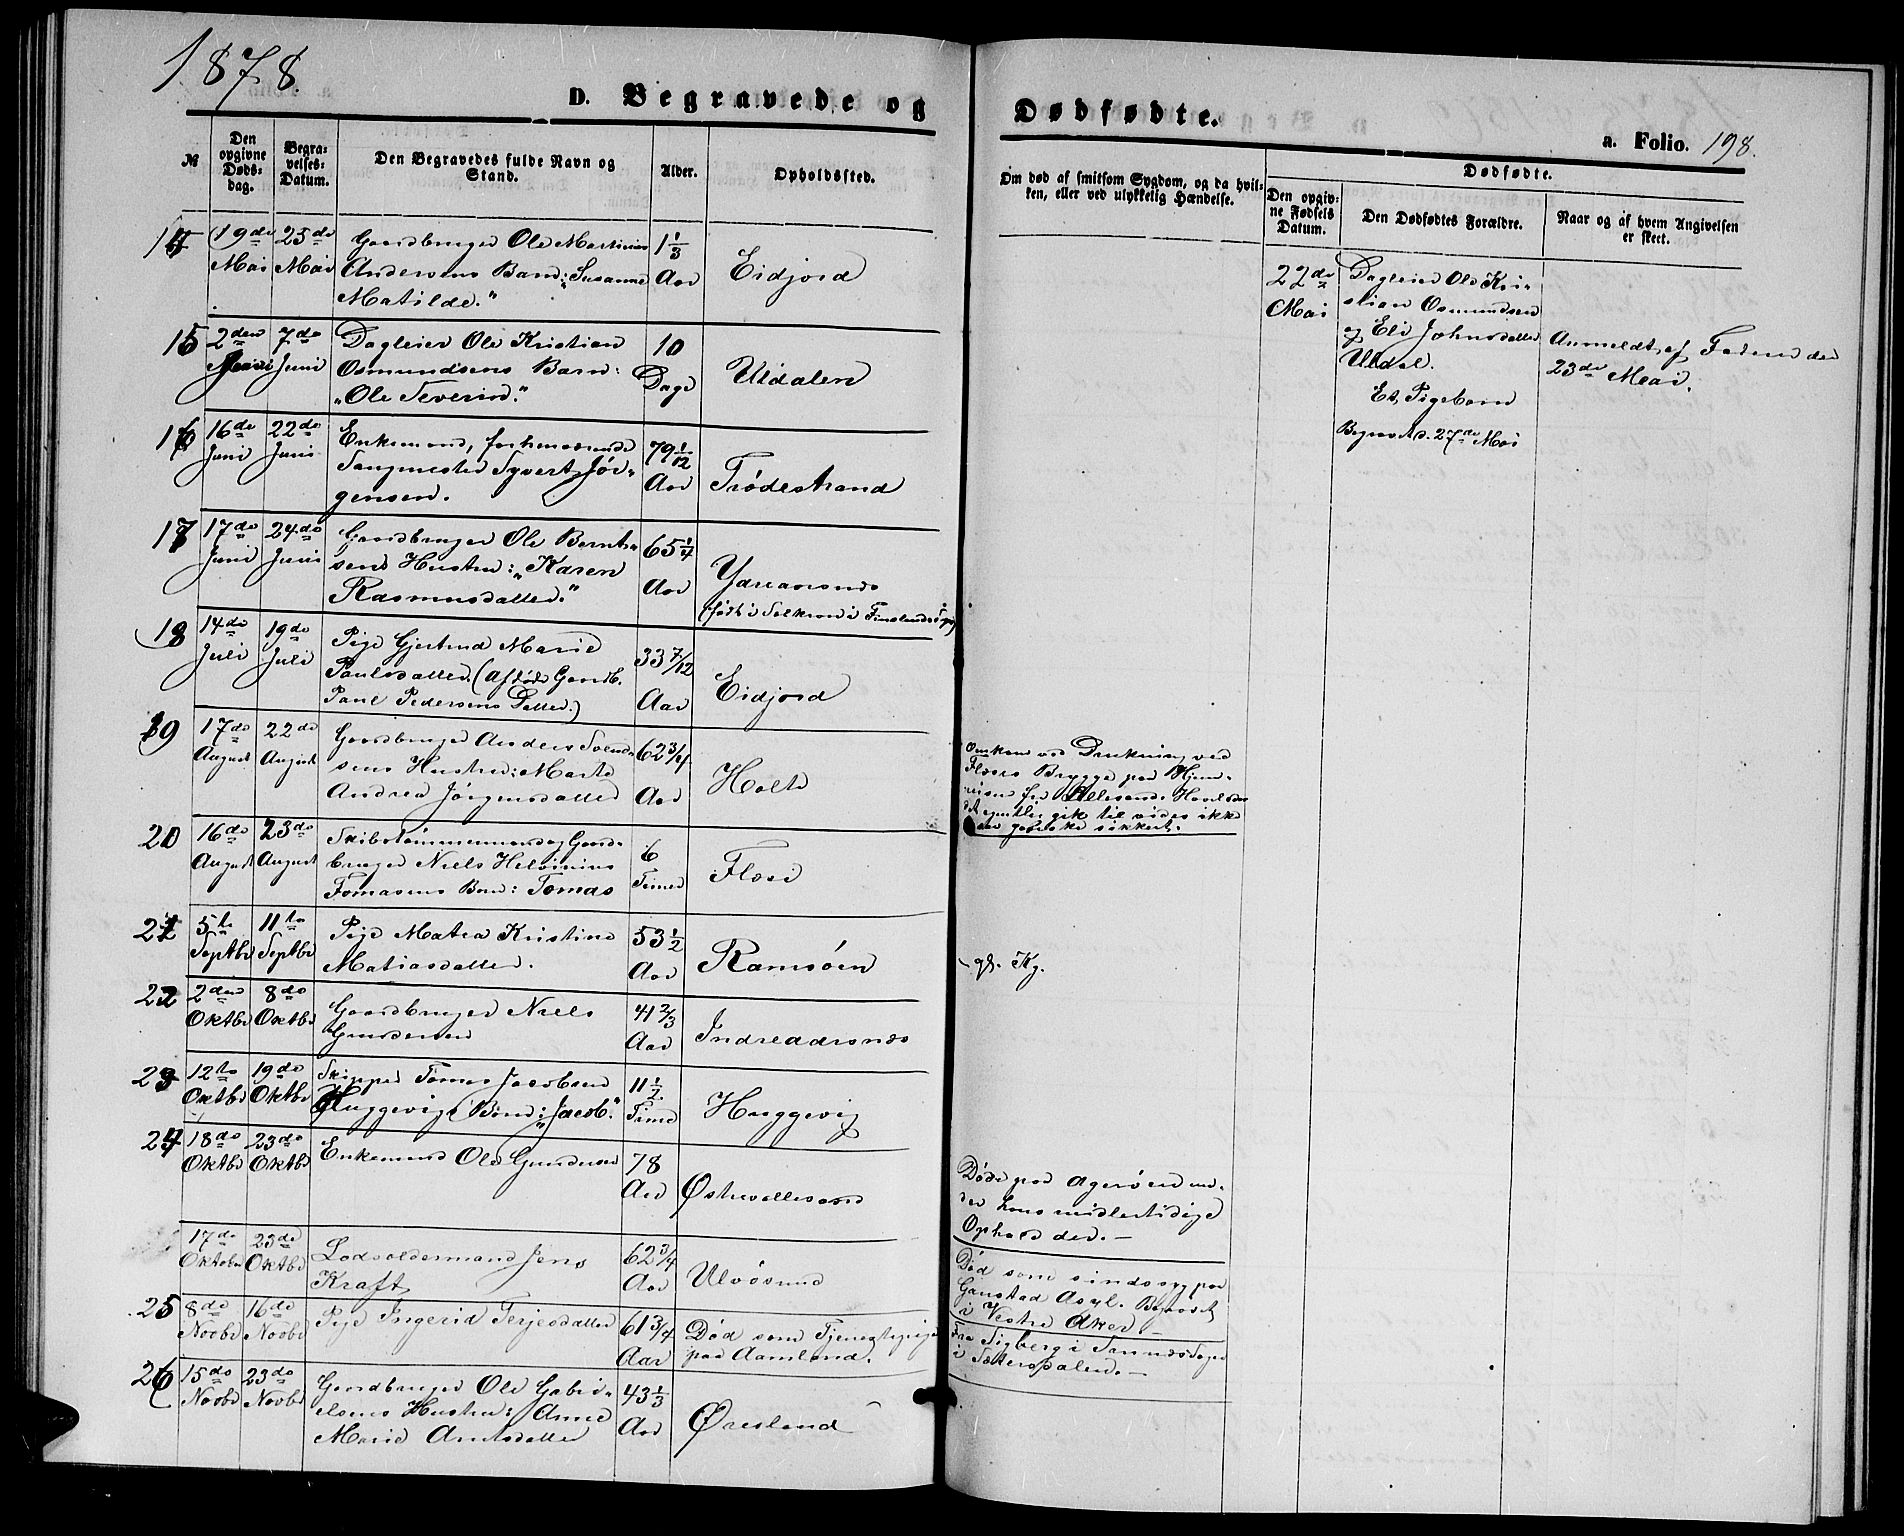 1878.
D. Begravede og
№
Den opgivne Døds-dag.
Begra-velses-Datum.
Den Begravedes fulde Navn og Stand.
Alder.
Opholdssted.
14
19de Mai
25de Mai
Gaardbruger Ole Martinius
Andersens Barn: "Susanne
Matilde."
1 1/3 Aar
Eidjord
15
2den Juni
7de Juni
Dagleier Ole Kristian
Osmundsens Barn:
"Ole Severin."
10 Dage
Uldalen
16
16de Juni
22de Juni
Enkemand, forhenværende
Sangmester Syvert Jør-
gensen.
79 1/12 Aar
Trødestrand
17
17de Juni
24de Juni
Gaardbruger Ole Bernt-
sens Hustru: "Karen
Rasmusdatter."
65 1/4 Aar
(født i
18
14de Juli
19de Juli
Pige Gjertrud Marie
Paulsdatter (Afdøde Gaardb.
Paul Pedersens Datter.)
33 7/12 Aar
Eidjord
19
17de August
22de August
Gaardbruger Anders Svend-
sens Hustru: Marte
Andrea Jørgensdatter
62 3/4 Aar
Holte
20
16de August
23de August
Skibstømmermand og Gaard-
bruger Niels
Tomasens Barn: Tomas
6 Timer
Fløse
21
5te Septbr
11te Septbr
Pige Matea Kristine
Matiasdatter.
53 1/2 Aar
Ramsøen
22
2den Oktbr
8de Oktbr
Gaardbruger Niels
Gundersen
41 2/3 Aar
Indreaarsnes
23
12te Oktbr
19de Oktbr
Skipper Tomas Jacobsen
Huggevigs Barn: "Jacob."
11 1/2 Time
Huggevig
24
18de Oktbr
23de Oktbr
Enkemand Ole Gundersen
78 Aar
Østrevallesand
17de Oktober
23de Oktbr
Lodsoldermand Jens
Kraft
62 3/4 Aar
Ulvøsund
25
8de Novbr
16de Novbr
Pige Ingerid Terjesdatter
61 3/4 Aar
Død som Tjenestepige
paa Aamland.
26
15de Novbr
23de Novbr
Gaardbruger Ole Gabri-
elsens Hustru: Anne
Marie Arntsdatter
43 1/3 Aar
Øresland
Dødfødte.
a. Folio. 198.
Om død af smitsom Sygdom, og da hvil-
ken, eller ved ulykkelig Hændelse.
Dødfødte.
Den opgiv-ne Fødsels Datum.
Den Dødfødtes Forældre.
Naar og af hvem Angivelsen er skeet.
22de Mai
Dagleier Ole Kri-
stian Osmundsen
og Eli Johnsdatter
Uldal.
Et Pigebarn
Begravet d. 27de Mai
Anmeldt af Faderen den
23de Mai.
Omkom ved Drukning ved
Fløses Brygge paa Hjem-
reisen fra
det egentlig gik til vides ikke
ganske sikkert.
Døde paa Agerøen un-
der hans midlertidige
Ophold der. –
Død som sindssyg paa
Gaustad Asyl. Begravet
i Vestre Aker. –
Fra i
i Sætersdalen. –